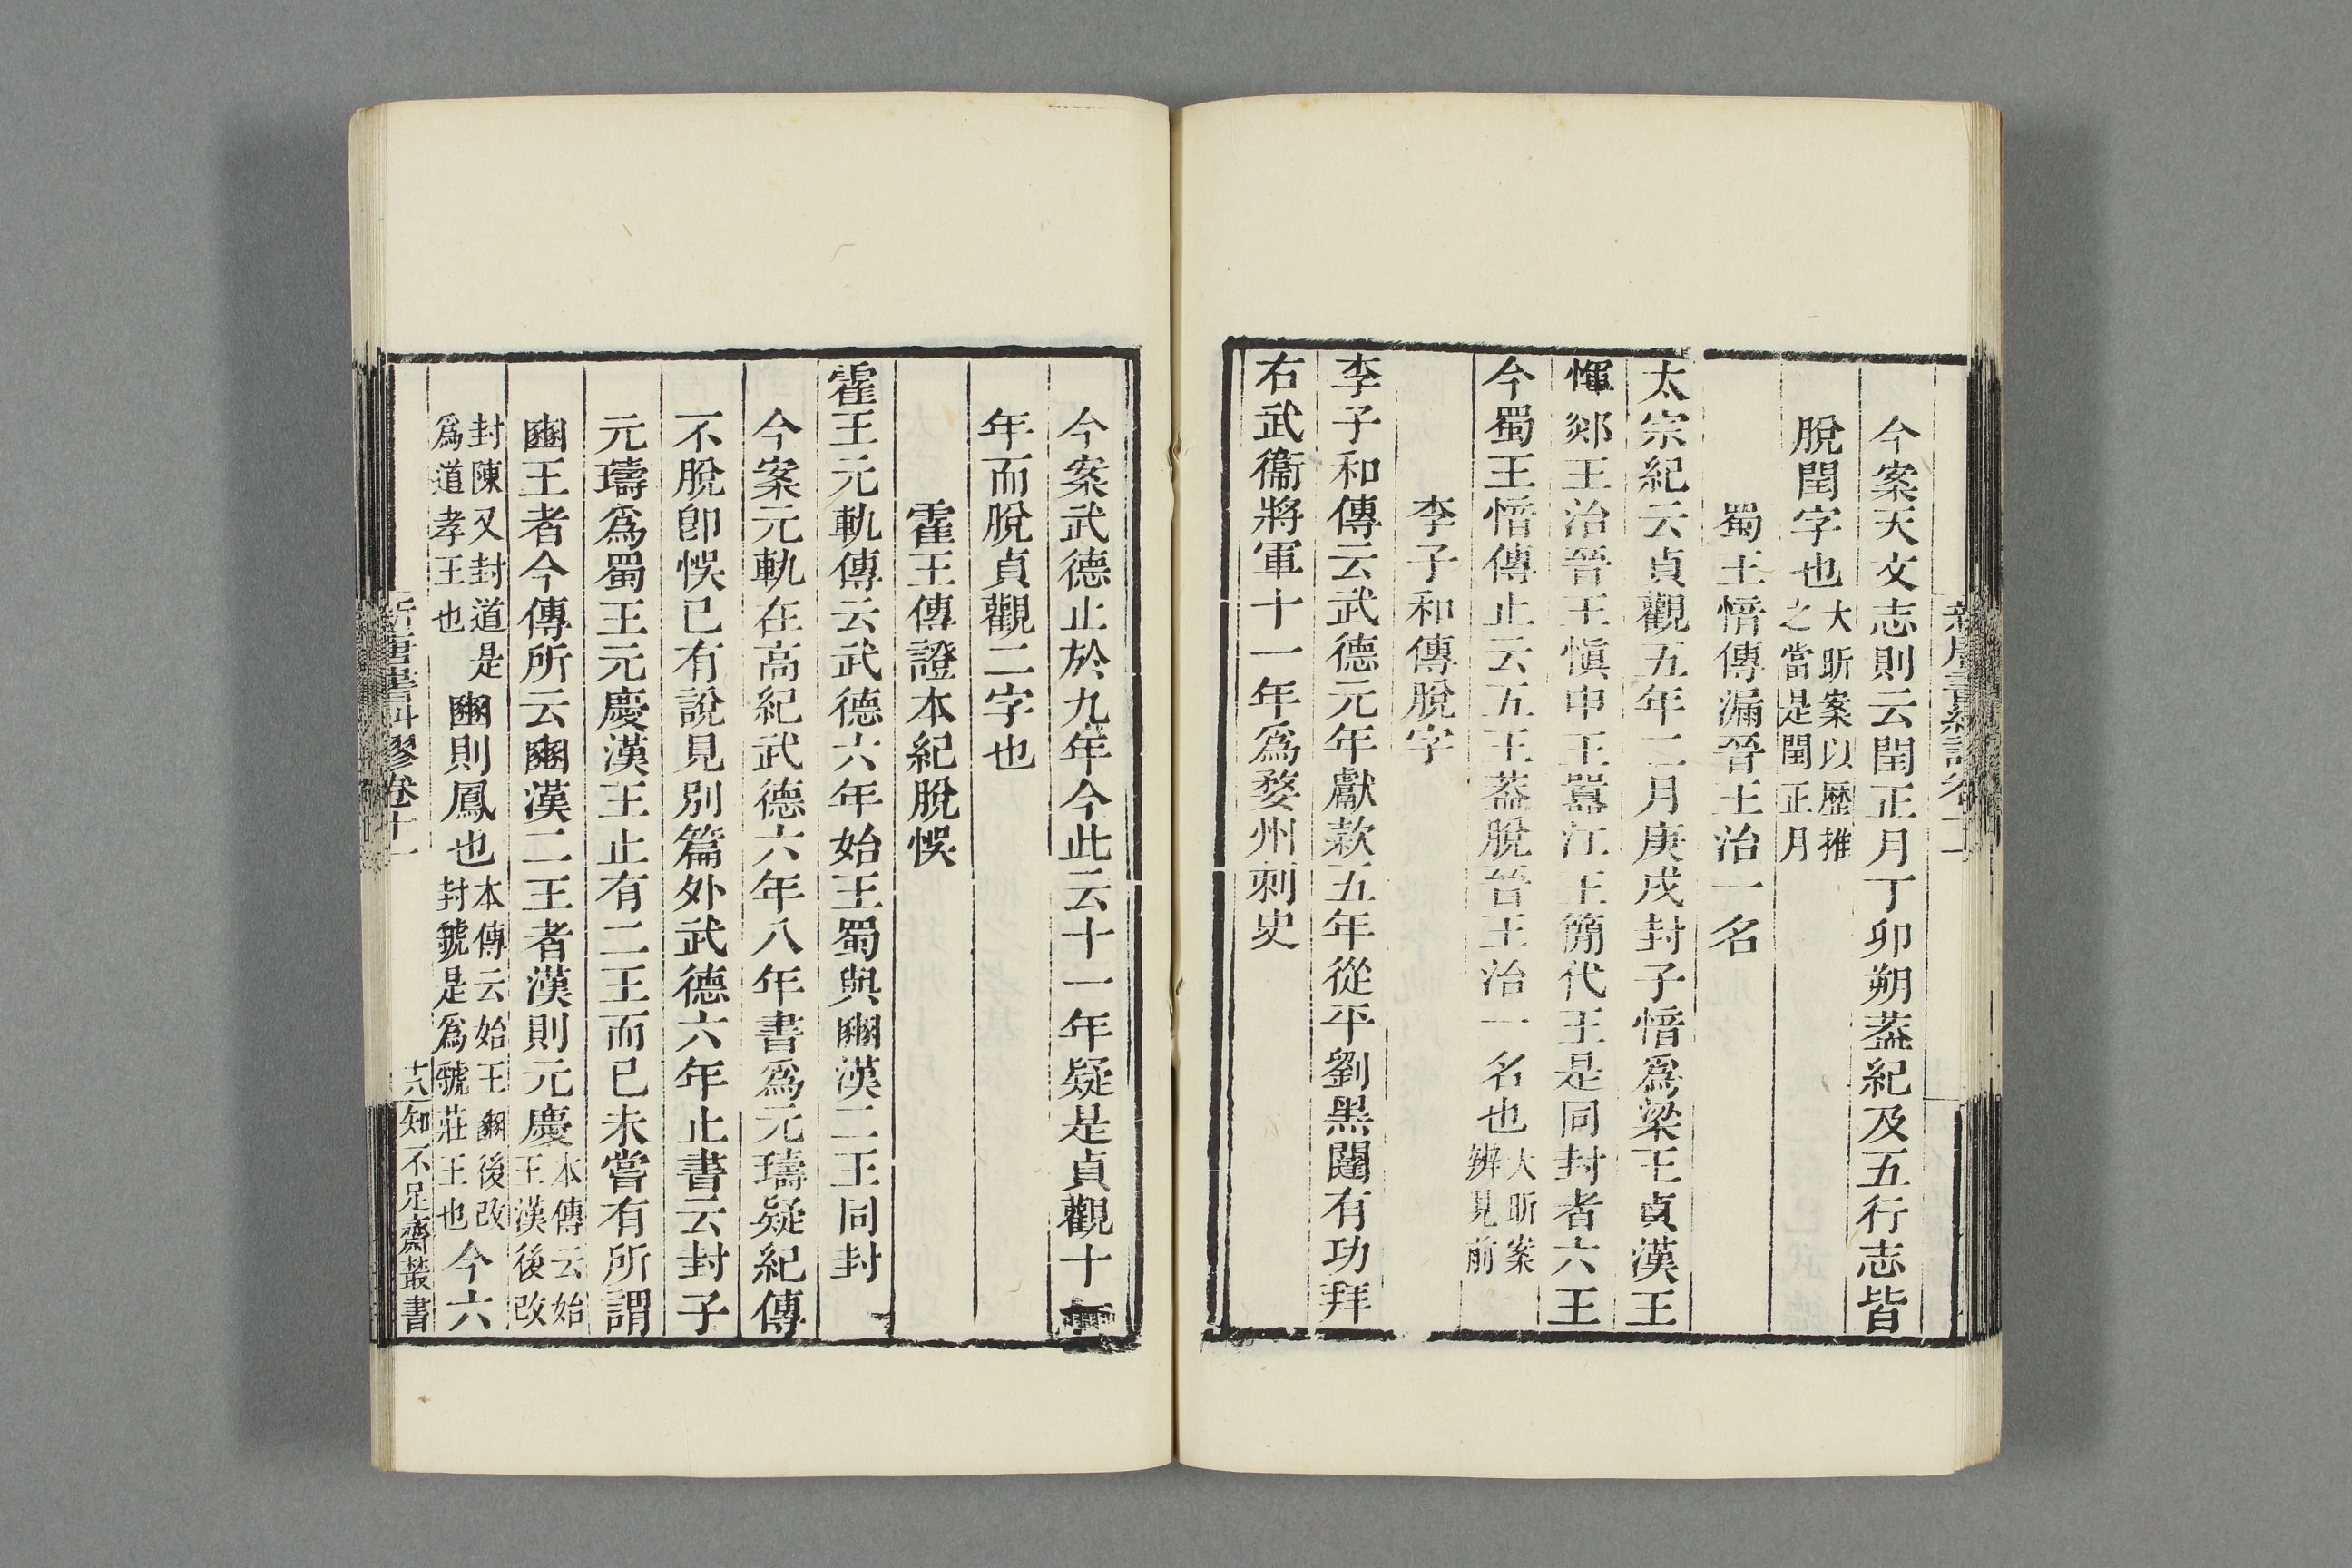 今案天文志則云閏正月丁卯朔葢紀及五行志皆
脫閏字也大昕案以歷推之當是閏正月
蜀王愔傳漏晉王治一名
太宗紀云貞觀五年二月庚戌封子愔爲梁王貞漢王
惲郯王治晉王愼申王囂江王簡代王是同封者六王
今蜀王愔傳止云五王葢脫晉王治一名也大昕案辨見前
李子和傳脫字
李子和傳云武德元年獻款五年從平劉黑闥有功拜
右武衞將軍十一年爲婺州刺史
今案武德止於九年今此云十一年疑是貞觀十一
年而脫貞觀二字也
霍王傳證本紀脫悞
霍王元軌傳云武德六年始王蜀與豳漢二王同封
今案元軌在高紀武德六年八年書爲元璹疑紀傳
不脫卽悞已有說見別篇外武德六年止書云封子
元璹爲蜀王元慶漢王止有二王而已未嘗有所謂
豳王者今傳所云豳漢二王者漢則元慶本傳云始王漢後改
封陳又封道是爲道孝王也豳則鳳也本傳云始王豳後改封虢是爲虢莊王也今六
新唐書糾謬卷十一
十八
知不足齋叢書